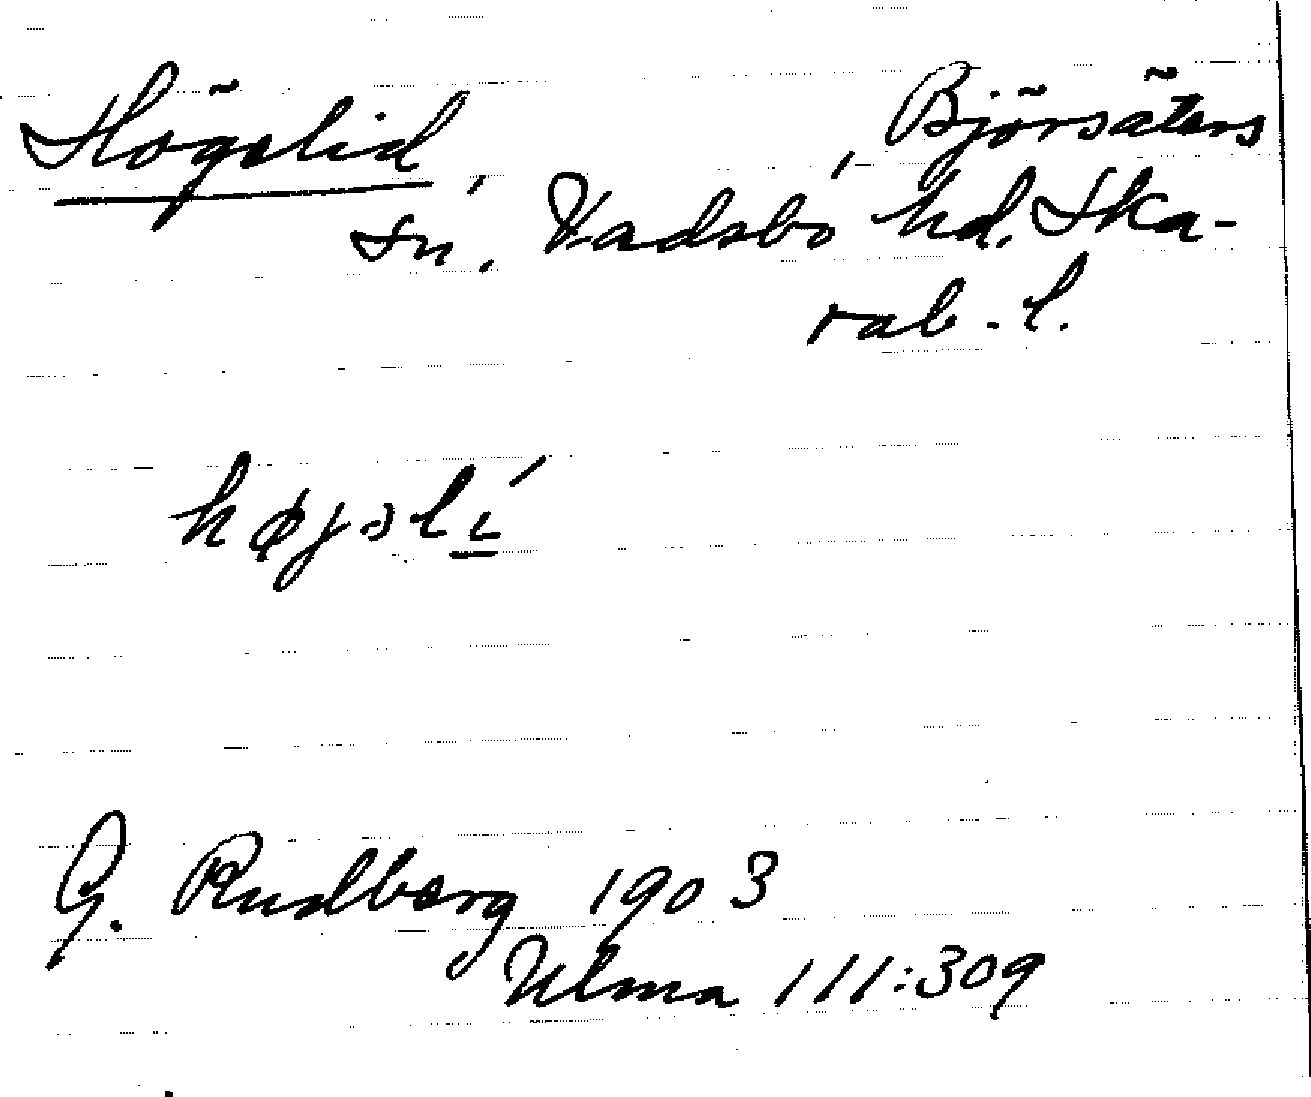 Högelid Björsäters
sn, Vadsbo hd. Ska-
rab. l.
højəlí
G. Rudberg 1903
Ulma 111:309